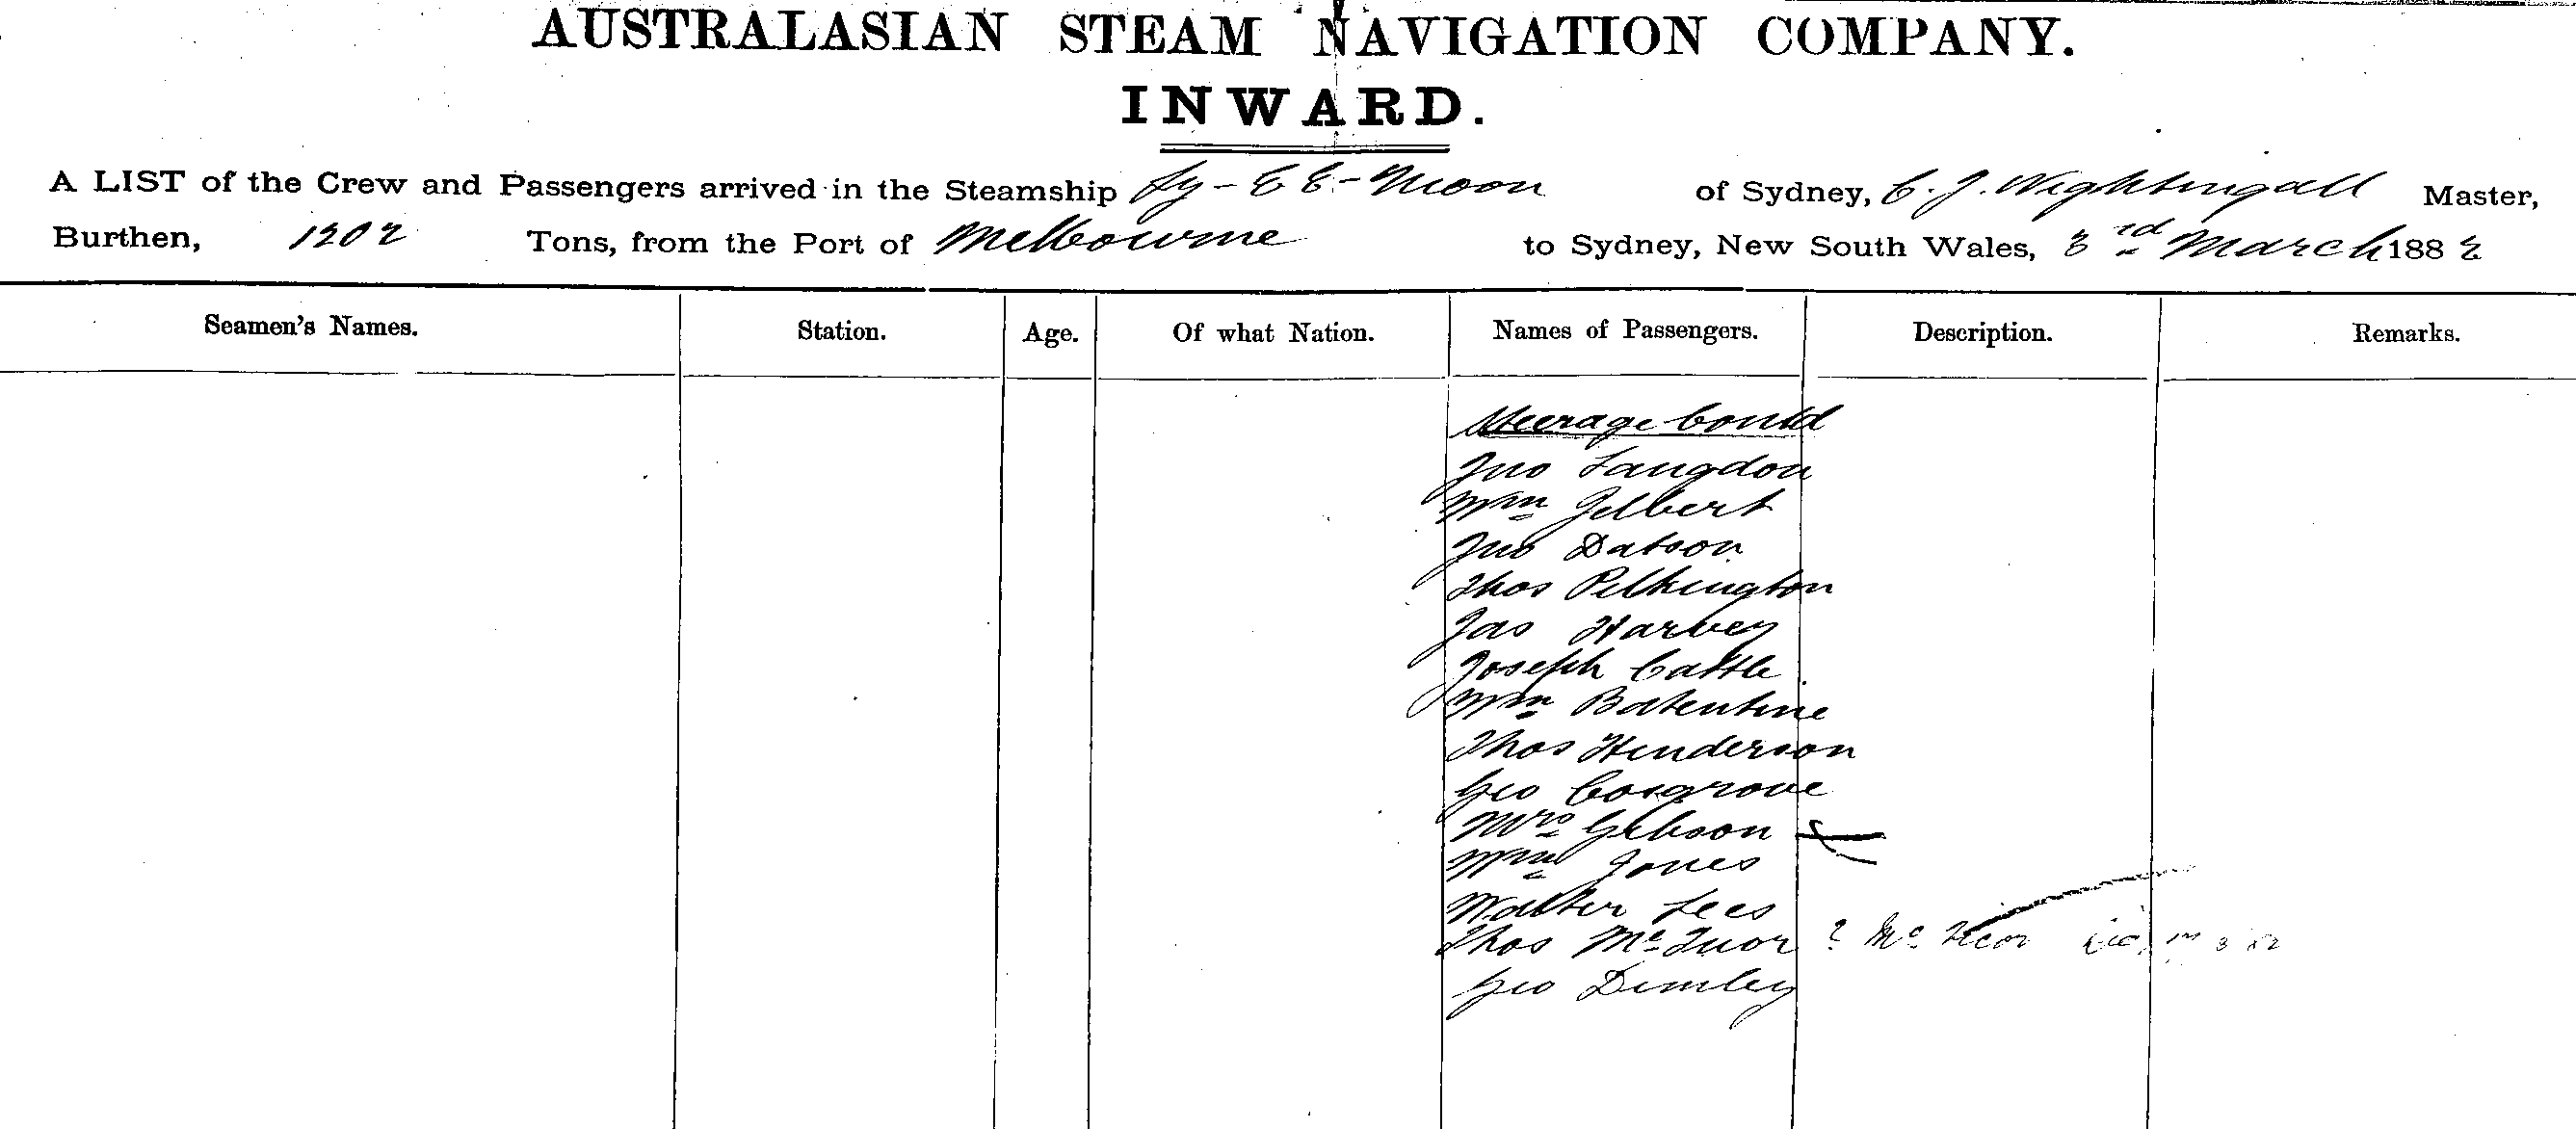 AUSTRALASIAN STEAM NAVIGATION COMPANY.
INWARD.
A LIST of the Crew and Passengers arrived in the Steamship Ly-EE-Moon of Sydney, C. J. Nightingall Master,
Burthen, 1202 Tons, from the Port of Melbourne to Sydney, New South Wales, 3rd March 1882
Seamen's Names. Station. Age. Of what Nation. Names of Passengers. Description. Remarks.
Steerage Contd
Jno Langdon
Wm Gelbert
Jno Datson
Thos Pilkington
Jas Harvey
Joseph Cattle
Wm Batentine
Thos Henderson
Geo Cosgrove
Mrs Gibson
Wm Jones
Walter Lees
Thos Mc Iuor ? Mc
Geo Dimley